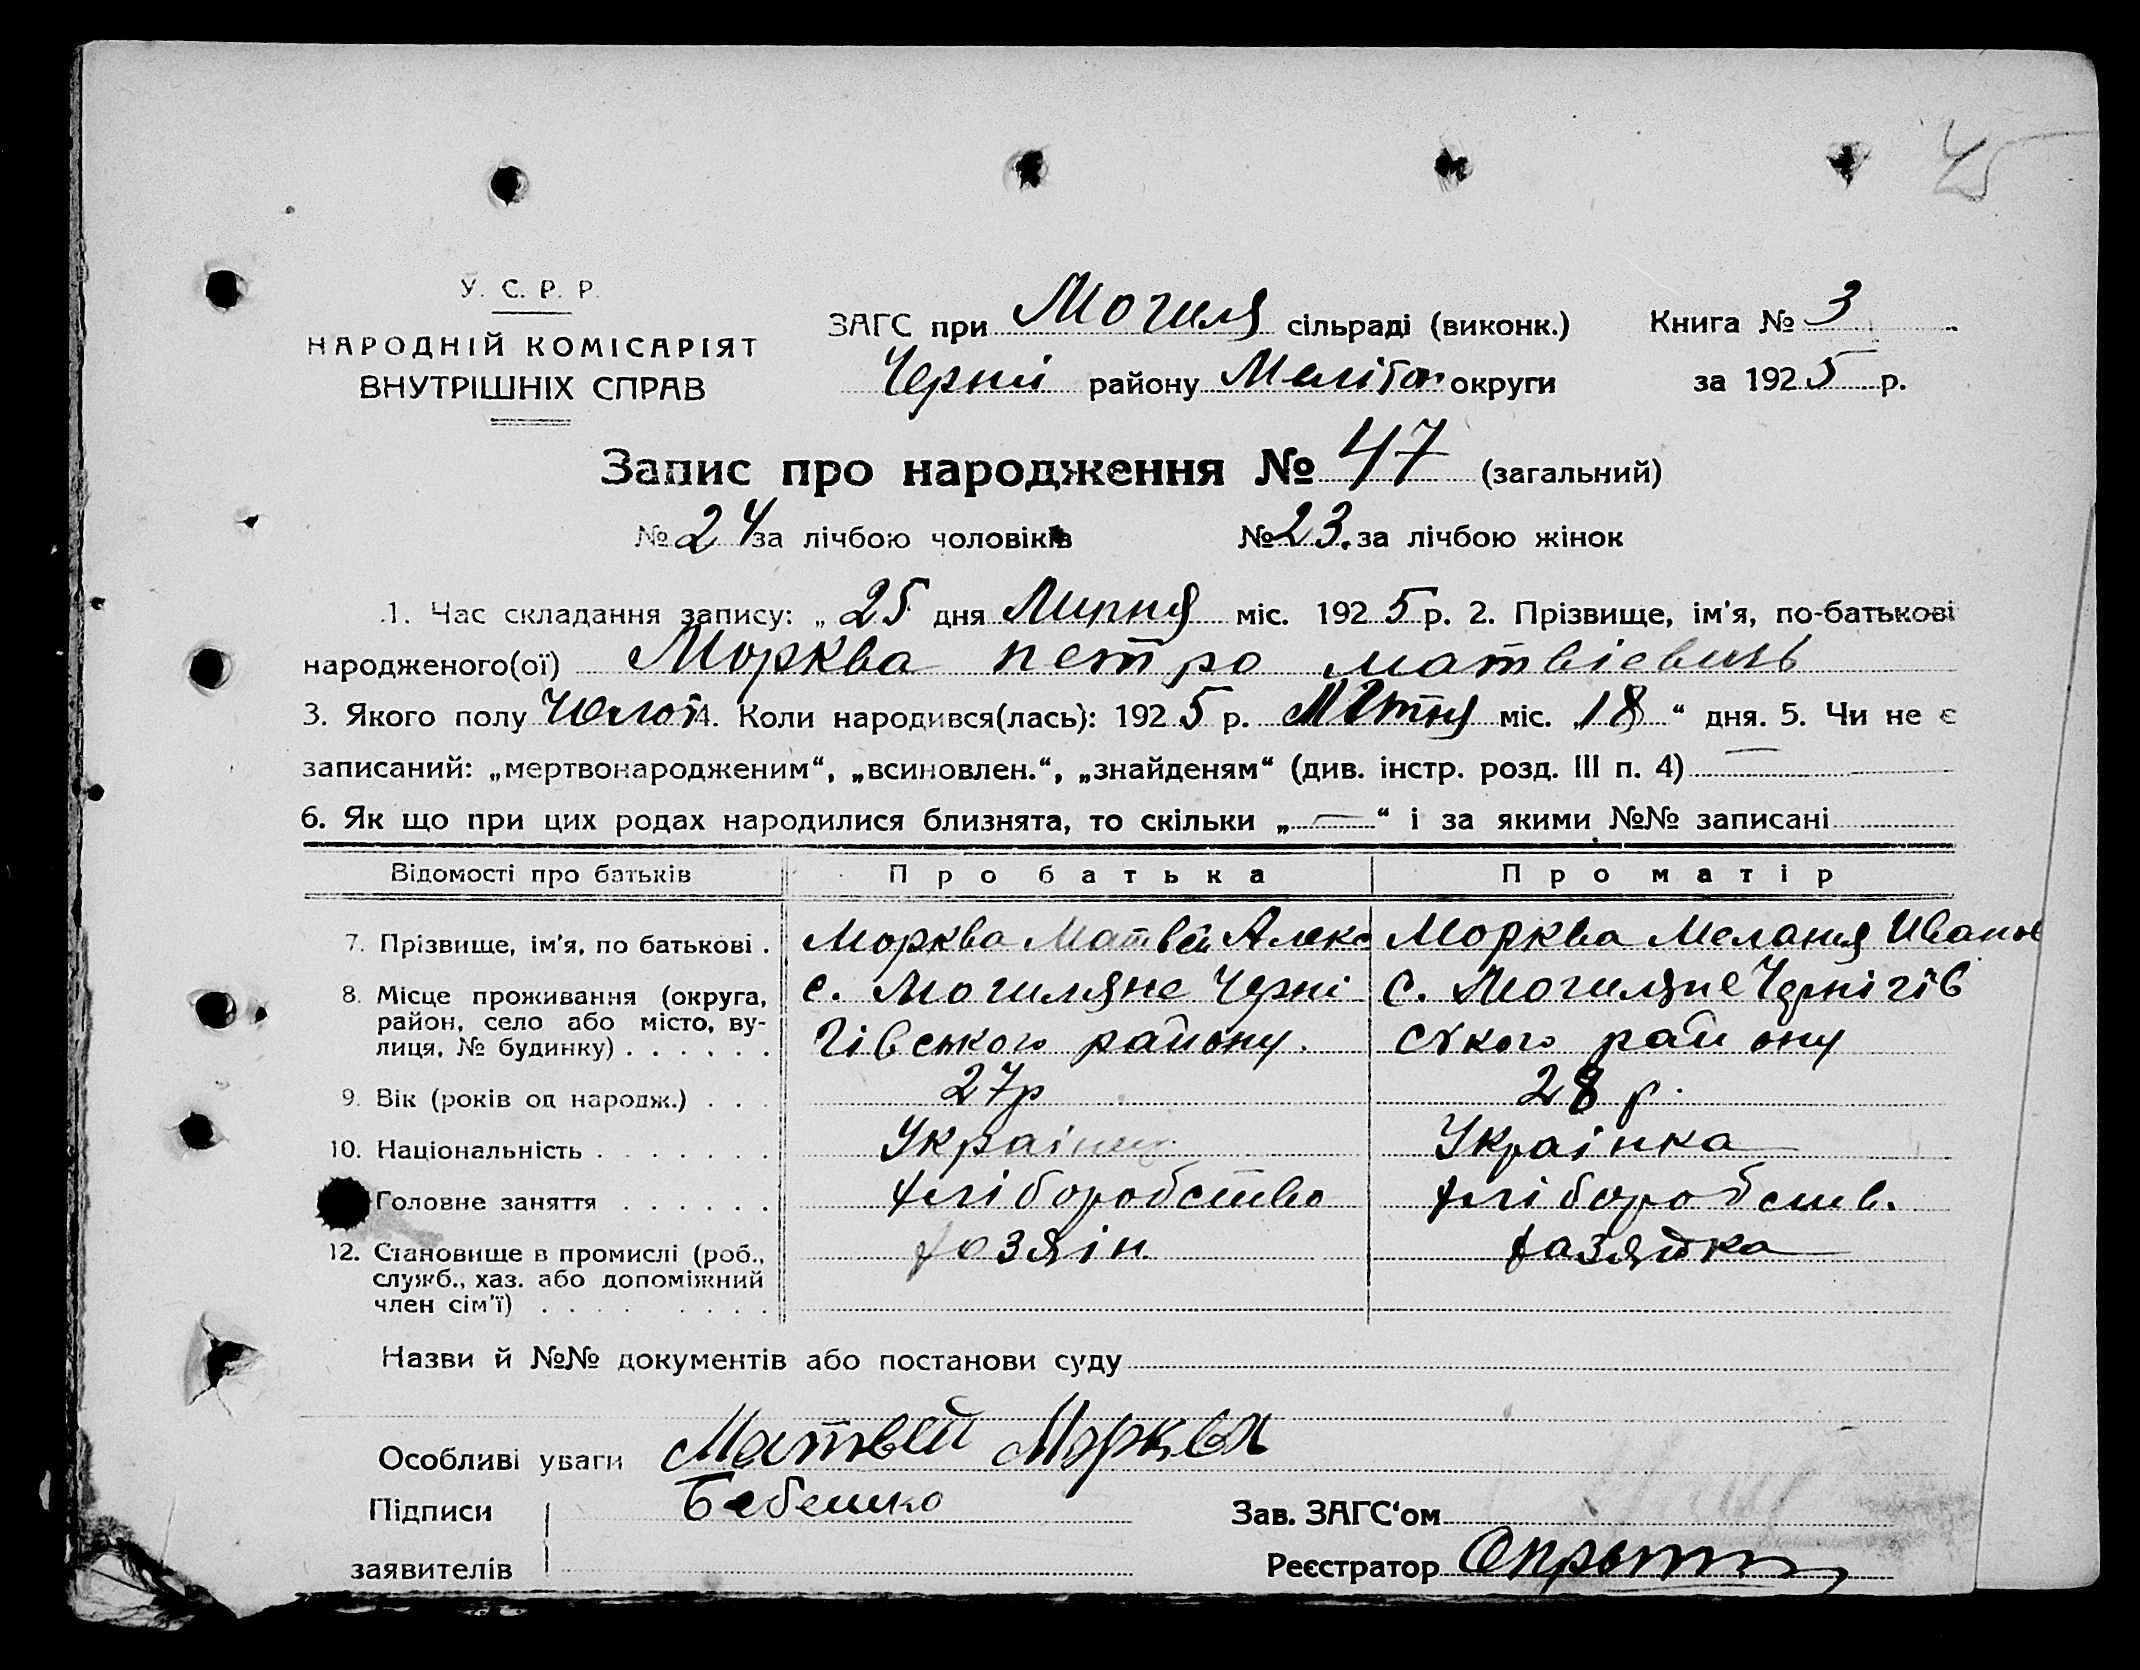 45
У. С. Р. Р.
НАРОДНІЙ КОМІСАРІЯТ
ВНУТРІШНІХ СПРАВ
ЗАГС при Могиля сільраді (виконк.)
Черни району Меліт округи
Книга № 3
за 1925 р.
Запис про народження № 47 (загальний)
№ 24 за лічбою чоловіків № 23. за лічбою жінок
1. Час складання запису: „ 25 дня Липня міс. 1925 р. 2. Прізвище, ім'я, по-батькові
народженого(ої) Морква петро матвіевичь
3. Якого полу Чолов 4. Коли народився(лась): 1925 р. міс. „18“ дня. 5. Чи не є
записаний: „мертвонародженим“, „всиновлен.“, „знайденям“ (див. інстр. розд. III п. 4) —
6. Як що при цих родах народилися близнята, то скільки „—“ і за якими №№ записані
Відомості про батьків Про батька Про матір
7. Прізвище, ім'я, по батькові . Морква Матвей Алекс Морква Мелания Иванов
8. Місце проживання (округа, район, село або місто, ву-лиця, № будинку) . . . . . .
с. Могиляне Черні
гівського району.
С. Могиляне Чернігів
ського району
9. Вік (років од народж.) . . . 27р 28 р.
10. Національність . . . . . . . Украінец Украінка
Головне заняття . . . . . . хліборобство хліборобств.
12. Становище в промислі (роб., служб., хаз. або допоміжний член сім'ї) . . . . . . . .
хозяін хазяйка
Назви й №№ документів або постанови суду
Особливі уваги Матвей Морква
Підписи заявителів Бебешко
Зав. ЗАГС'ом
Реєстратор